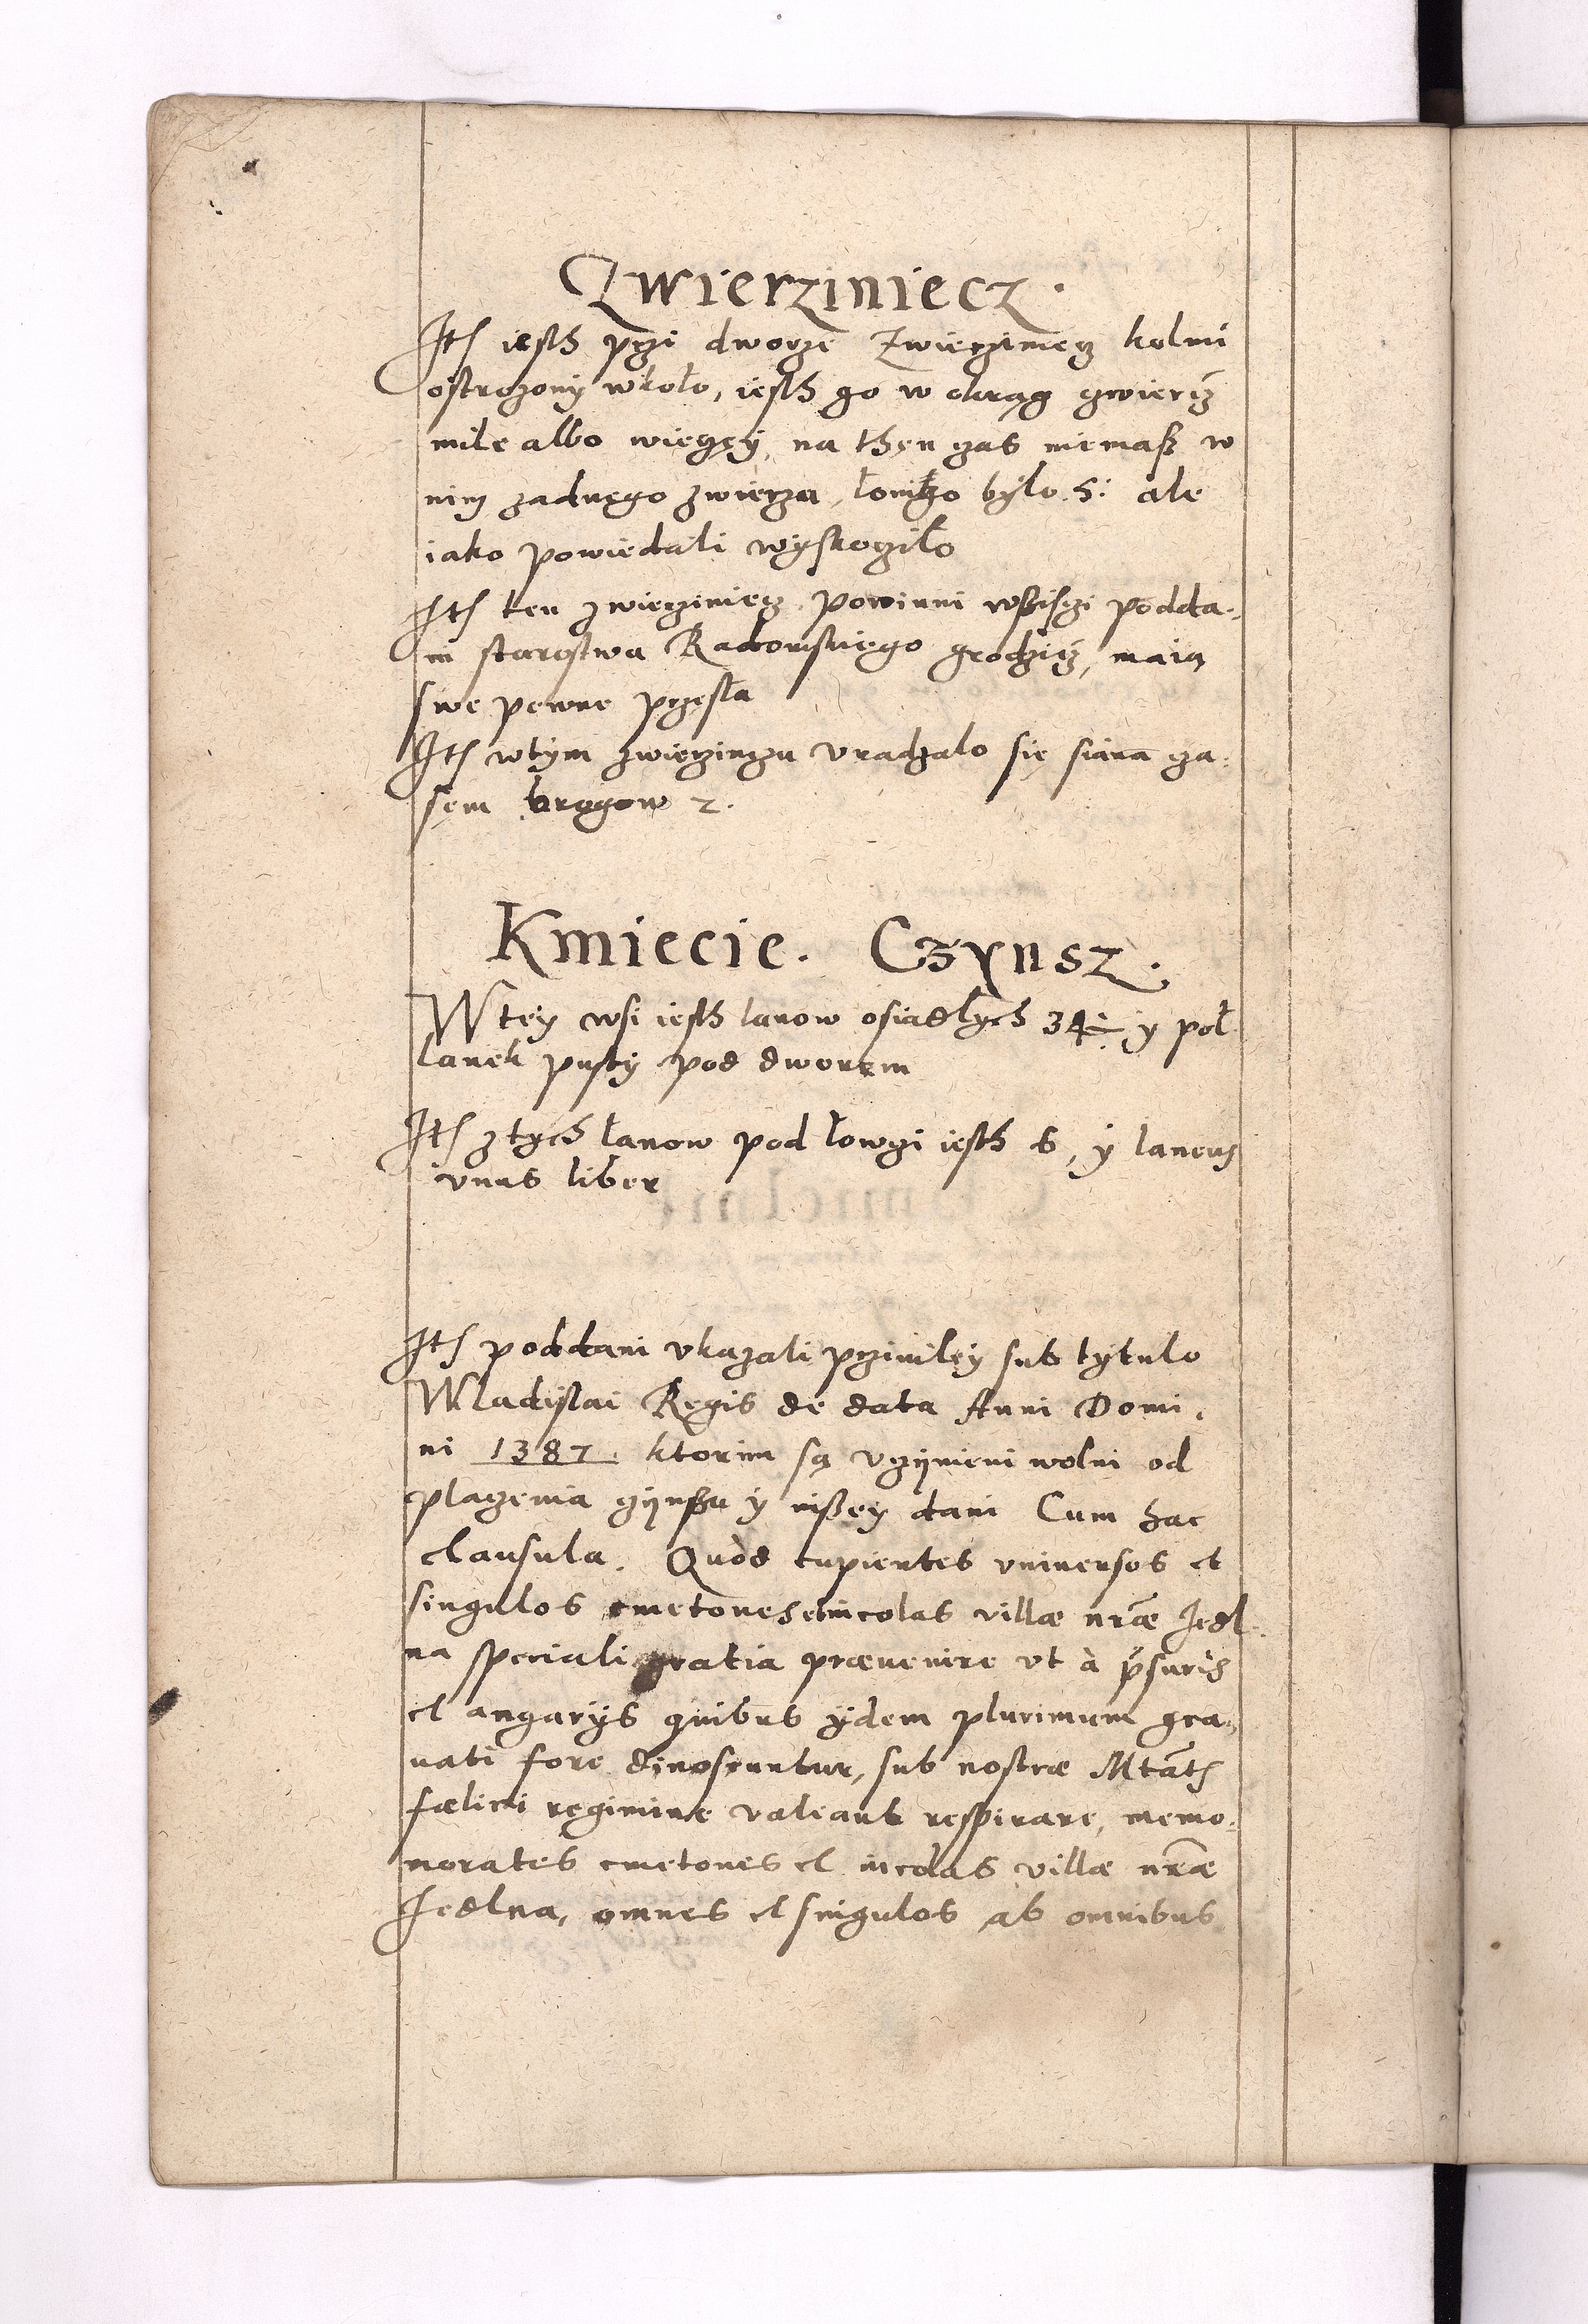 Zwierziniecz.
Ite(m) iesth przi dworze Zwierziniecz kolmi
ostrożony wkoło, iesth go w okrąg czwiercz
mile albo więczey, na then czas niemasz w
nim żadnego zwierza, łoni było 5. ale
iako powiedali wyskoczilo
Ite(m) ten zwierziniecz powinni wszisczi podda-
ni starostwa Radomskiego grodzicz, maią
swe pewne przęsła
Ite(m) wtym zwierzinczu vradzalo się siana cza-
sem brogow 2.
Kmiecie. Czynsz.
W tey wsi iesth lanow osiadłych 34 y poł
lanek pusty pod dworem
Ite(m) z tych łanow pod łowczi iesth 6, y laneus
vnus liber
Ite(m) poddani vkazali prziviley sub tytulo
Wladislai Regis de data Anni Domi-
ni 1387. ktorim są vczynieni wolni od
placzenia czynszu y inszey dani Cum hac
clausula. Quòd cupientes vniuersos et
singulos cmetones et incolas villæ nr̃æ Jedl-
na speciali gratia præuenire vt à p̃suris
et angarys quibus ydem plurimum gra-
uati fore dinoscuntur, sub nostræ Mtat(is)
fælici regimine valeant respirare, memo-
norates cmetones et incolas villæ nr̃æ
Jedlna, omnes et singulos ab omnibus